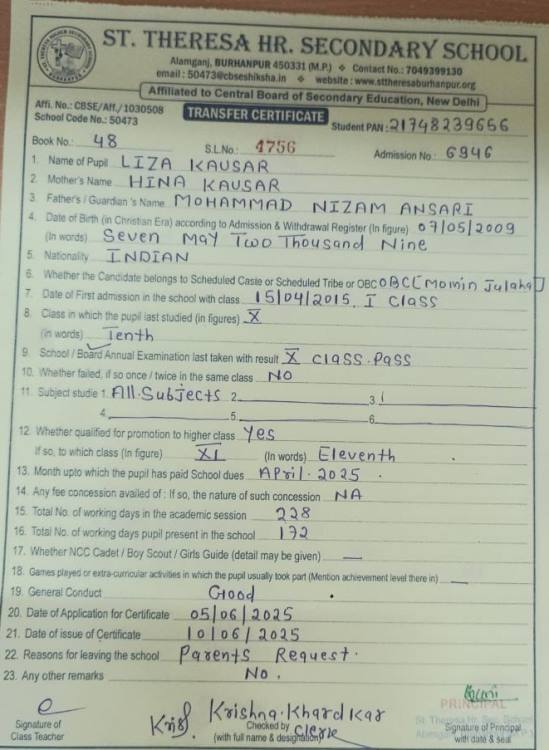 ST. THERESA HR. SECONDARY SCHOOL
Alamganj, BURHANPUR 450331 (M.P.) ❖ Contact No.: 7049399130
email : 50473@cbseshiksha.in ❖ website : www.sttheresaburhanpur.org
Affiliated to Central Board of Secondary Education, New Delhi
Affi. No.: CBSE/Aff./1030508
School Code No.: 50473
TRANSFER CERTIFICATE
Student PAN: 21748239656
Book No.: 48 S.L.No.: 4756 Admission No.: 6946
1. Name of Pupil LIZA KAUSAR
2. Mother's Name HINA KAUSAR
3. Father's / Guardian 's Name MOHAMMAD NIZAM ANSARI
4. Date of Birth (in Christian Era) according to Admission & Withdrawal Register (In figure) 07/05/2009
(In words) Seven May Two Thousand Nine
5. Nationality INDIAN
6. Whether the Candidate belongs to Scheduled Caste or Scheduled Tribe or OBC OBC [Momin Julaha]
7. Date of First admission in the school with class 15/04/2015, I Class
8. Class in which the pupil last studied (in figures) X
(in words) Tenth
9. School / Board Annual Examination last taken with result X Class Pass
10. Whether failed, if so once / twice in the same class NO
11. Subject studie 1. All Subjects 2. 3.
4. 5. 6.
12. Whether qualified for promotion to higher class Yes
If so, to which class (In figure) XI (In words) Eleventh
13. Month upto which the pupil has paid School dues April. 2025
14. Any fee concession availed of : If so, the nature of such concession NA
15. Total No. of working days in the academic session 228
16. Total No. of working days pupil present in the school 172
17. Whether NCC Cadet / Boy Scout / Girls Guide (detail may be given) —
18. Games played or extra-curricular activities in which the pupil usually took part (Mention achievement level there in) —
19. General Conduct Good
20. Date of Application for Certificate 05/06/2025
21. Date of issue of Certificate 10/06/2025
22. Reasons for leaving the school Parents Request.
23. Any other remarks No.
PRINCIPAL
Krishna. Khardkar
Signature of
Class Teacher
Checked by
(with full name & designation) Clerk
Signature of Principal
with date & seal